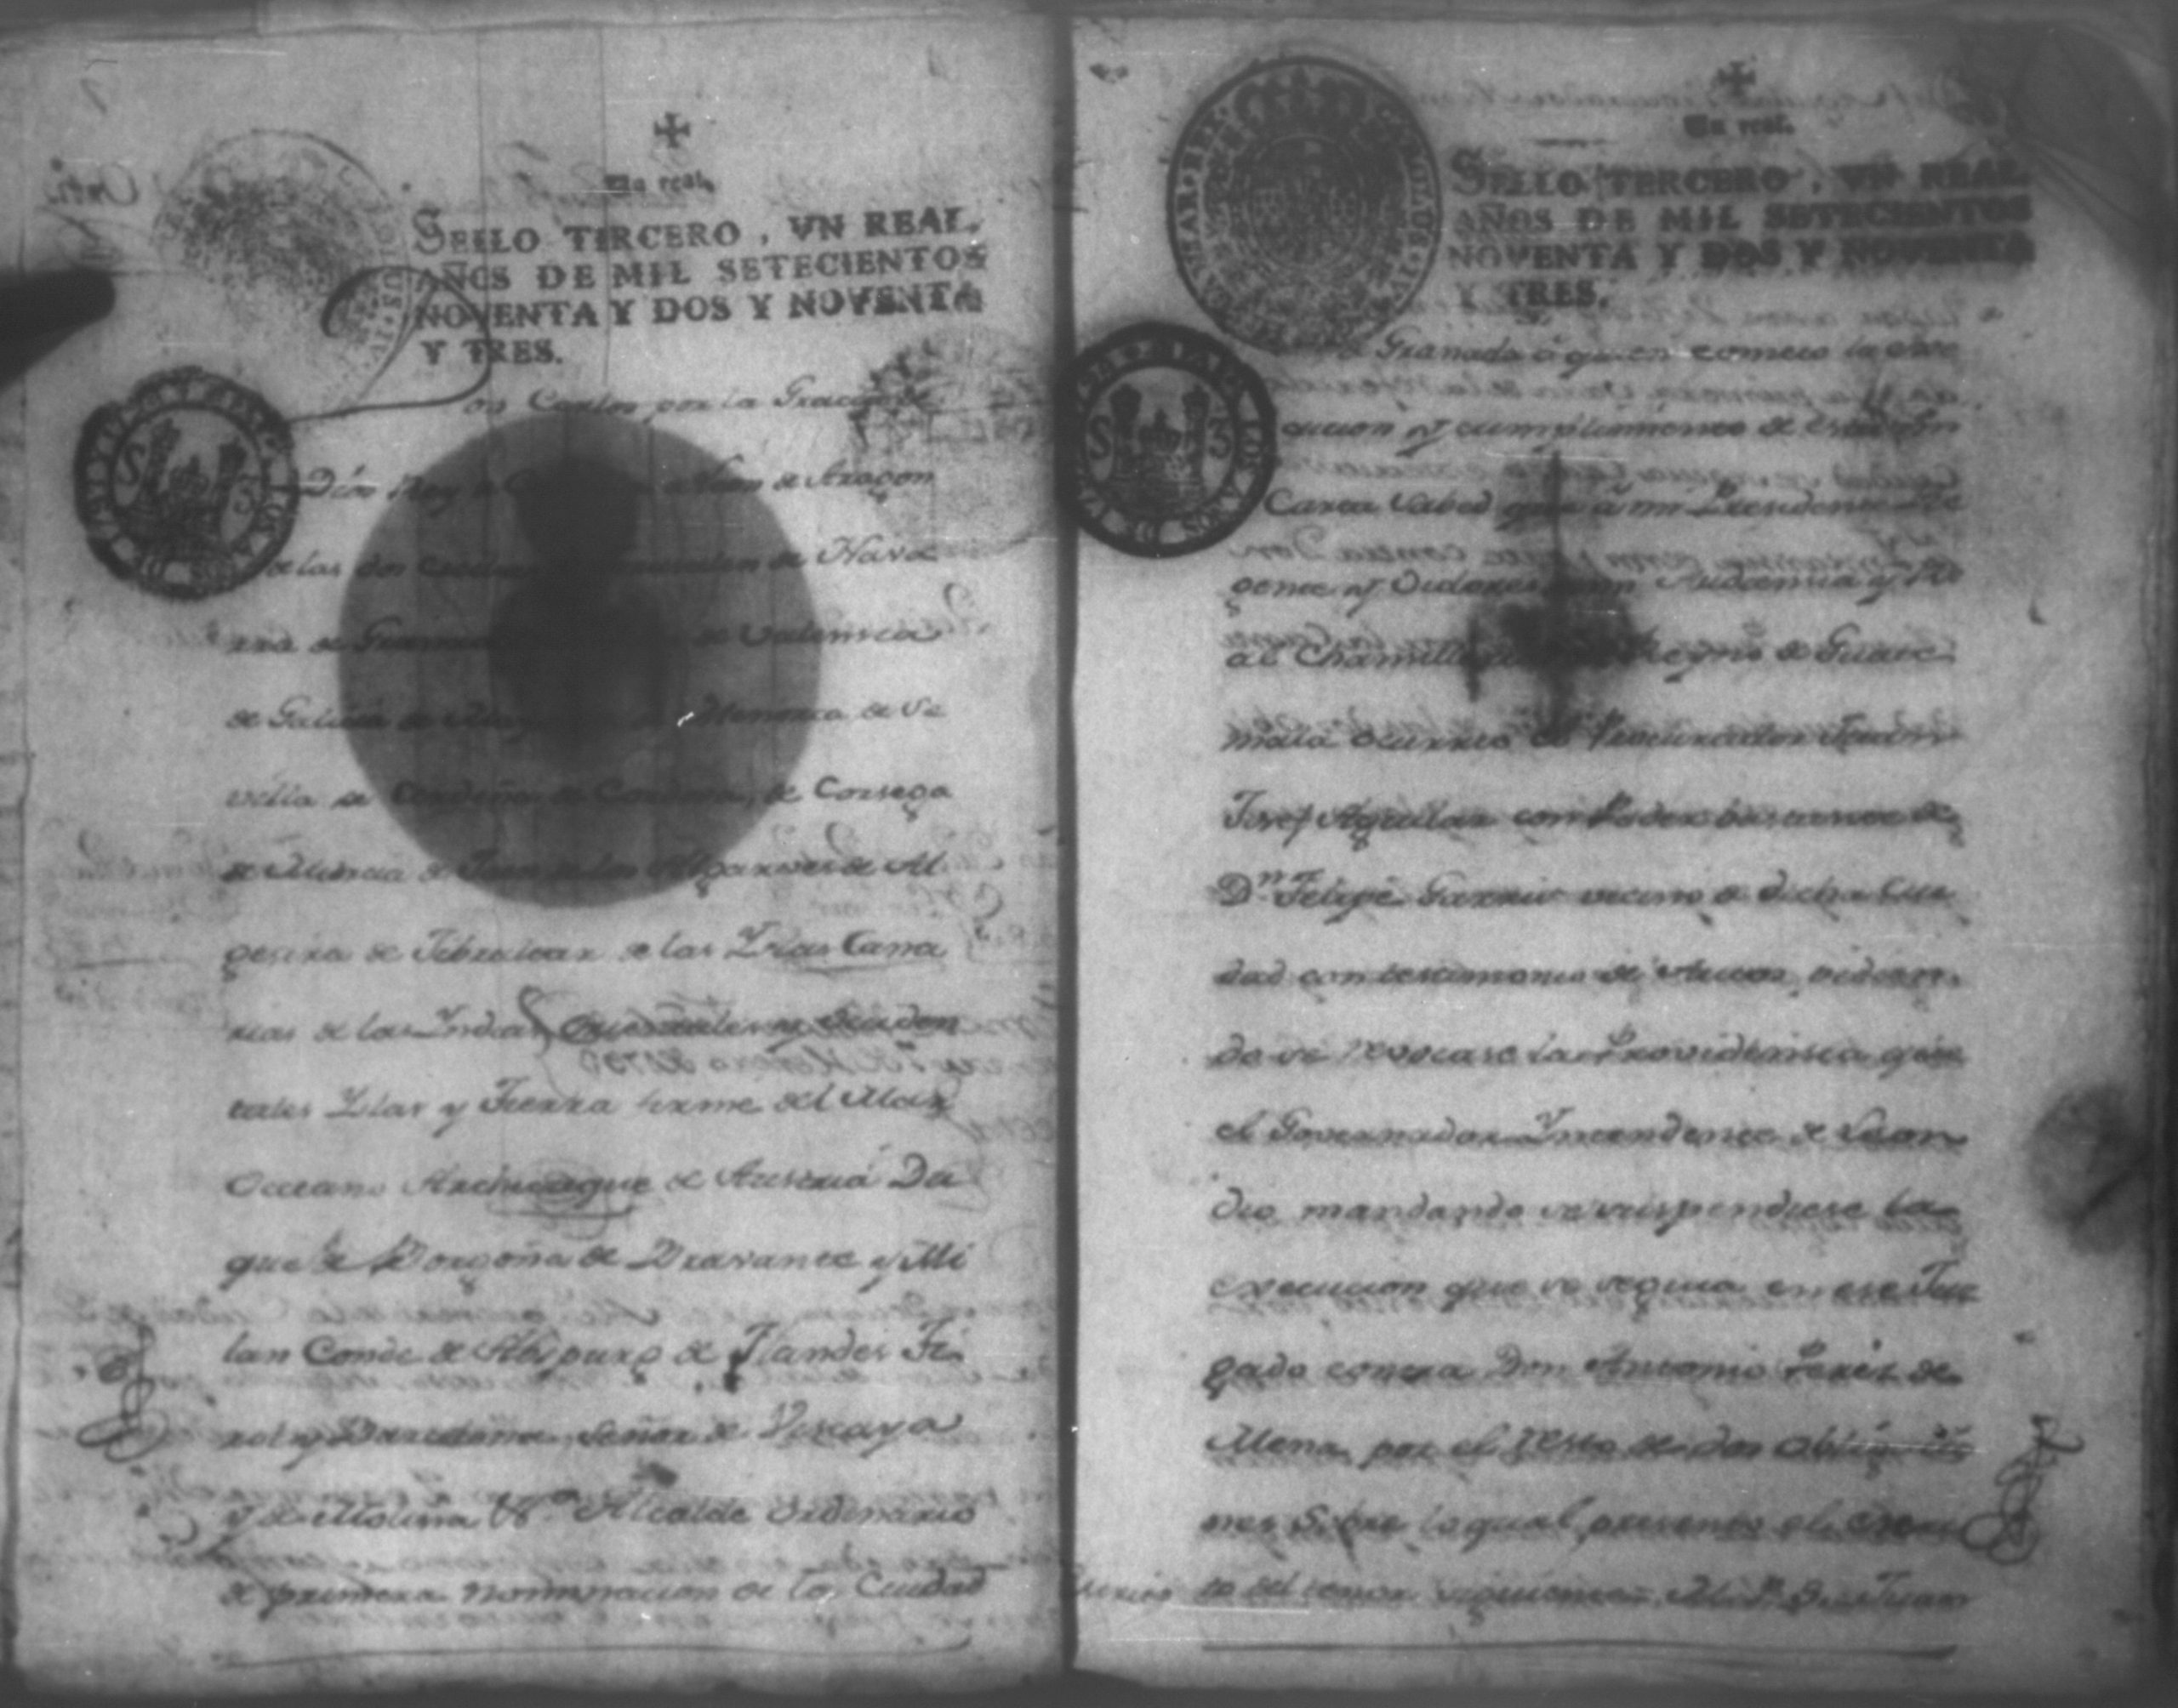 Un real.
SELLO TERCERO, VN REAL,
AÑOS DE MIL SETECIENTOS
NOVENTA Y DOS Y NOVENTA
Y TRES.
on Carlos por la Gracia de
Dios Rey de Leon de Aragon
de las dos de Nava
rra de Granada de Valencia
de Galicia de Menorca de Se
villa de Cerdeña de Cordova, de Corsega
de Murcia de Jaen de los Algarves de Al
gecira de Gibraltar de las Yslas Cana
rias de las Yndias Orientales y Occiden
tales Yslas y Tierra firme del Mar
Occeano Archiduque de Austria Du
que de Borgoña de Bravante y Mi
lan Conde de Abspurg de Flandes Ti
rol y Barcelona, Señor de Viscaya
y de Molina Alcalde Ordinario
de primera nominacion de la Ciudad
Un real.
SELLO TERCERO, VN REAL
AÑOS DE MIL SETECIENTOS
NOVENTA Y DOS Y NOVENTA
Y TRES.
Granada á quien cometo la exe
cucion y cumplimiento de esta mi
Carta Sabed que á mi Presidente Re
gente y Oidores de mi Audiencia y Re
al Chancilleria Reyno de Guate
mala ocurrio el Procurador Juan
Josef Aguilar con Poder bastante de
Dn. Felipe vecino de dicha Ciu
dad con testimonio de Autos, pidien
do se revocase la Providencia que
el Governador Yntendente de Leon
dio mandando se suspendiese la
execucion que se seguia en ese Juz
gado contra Don Antonio Perez de
Mena por el resto de dos obligacio
nes Sobre lo qual presentó el
to del tenor siguiente. Juan